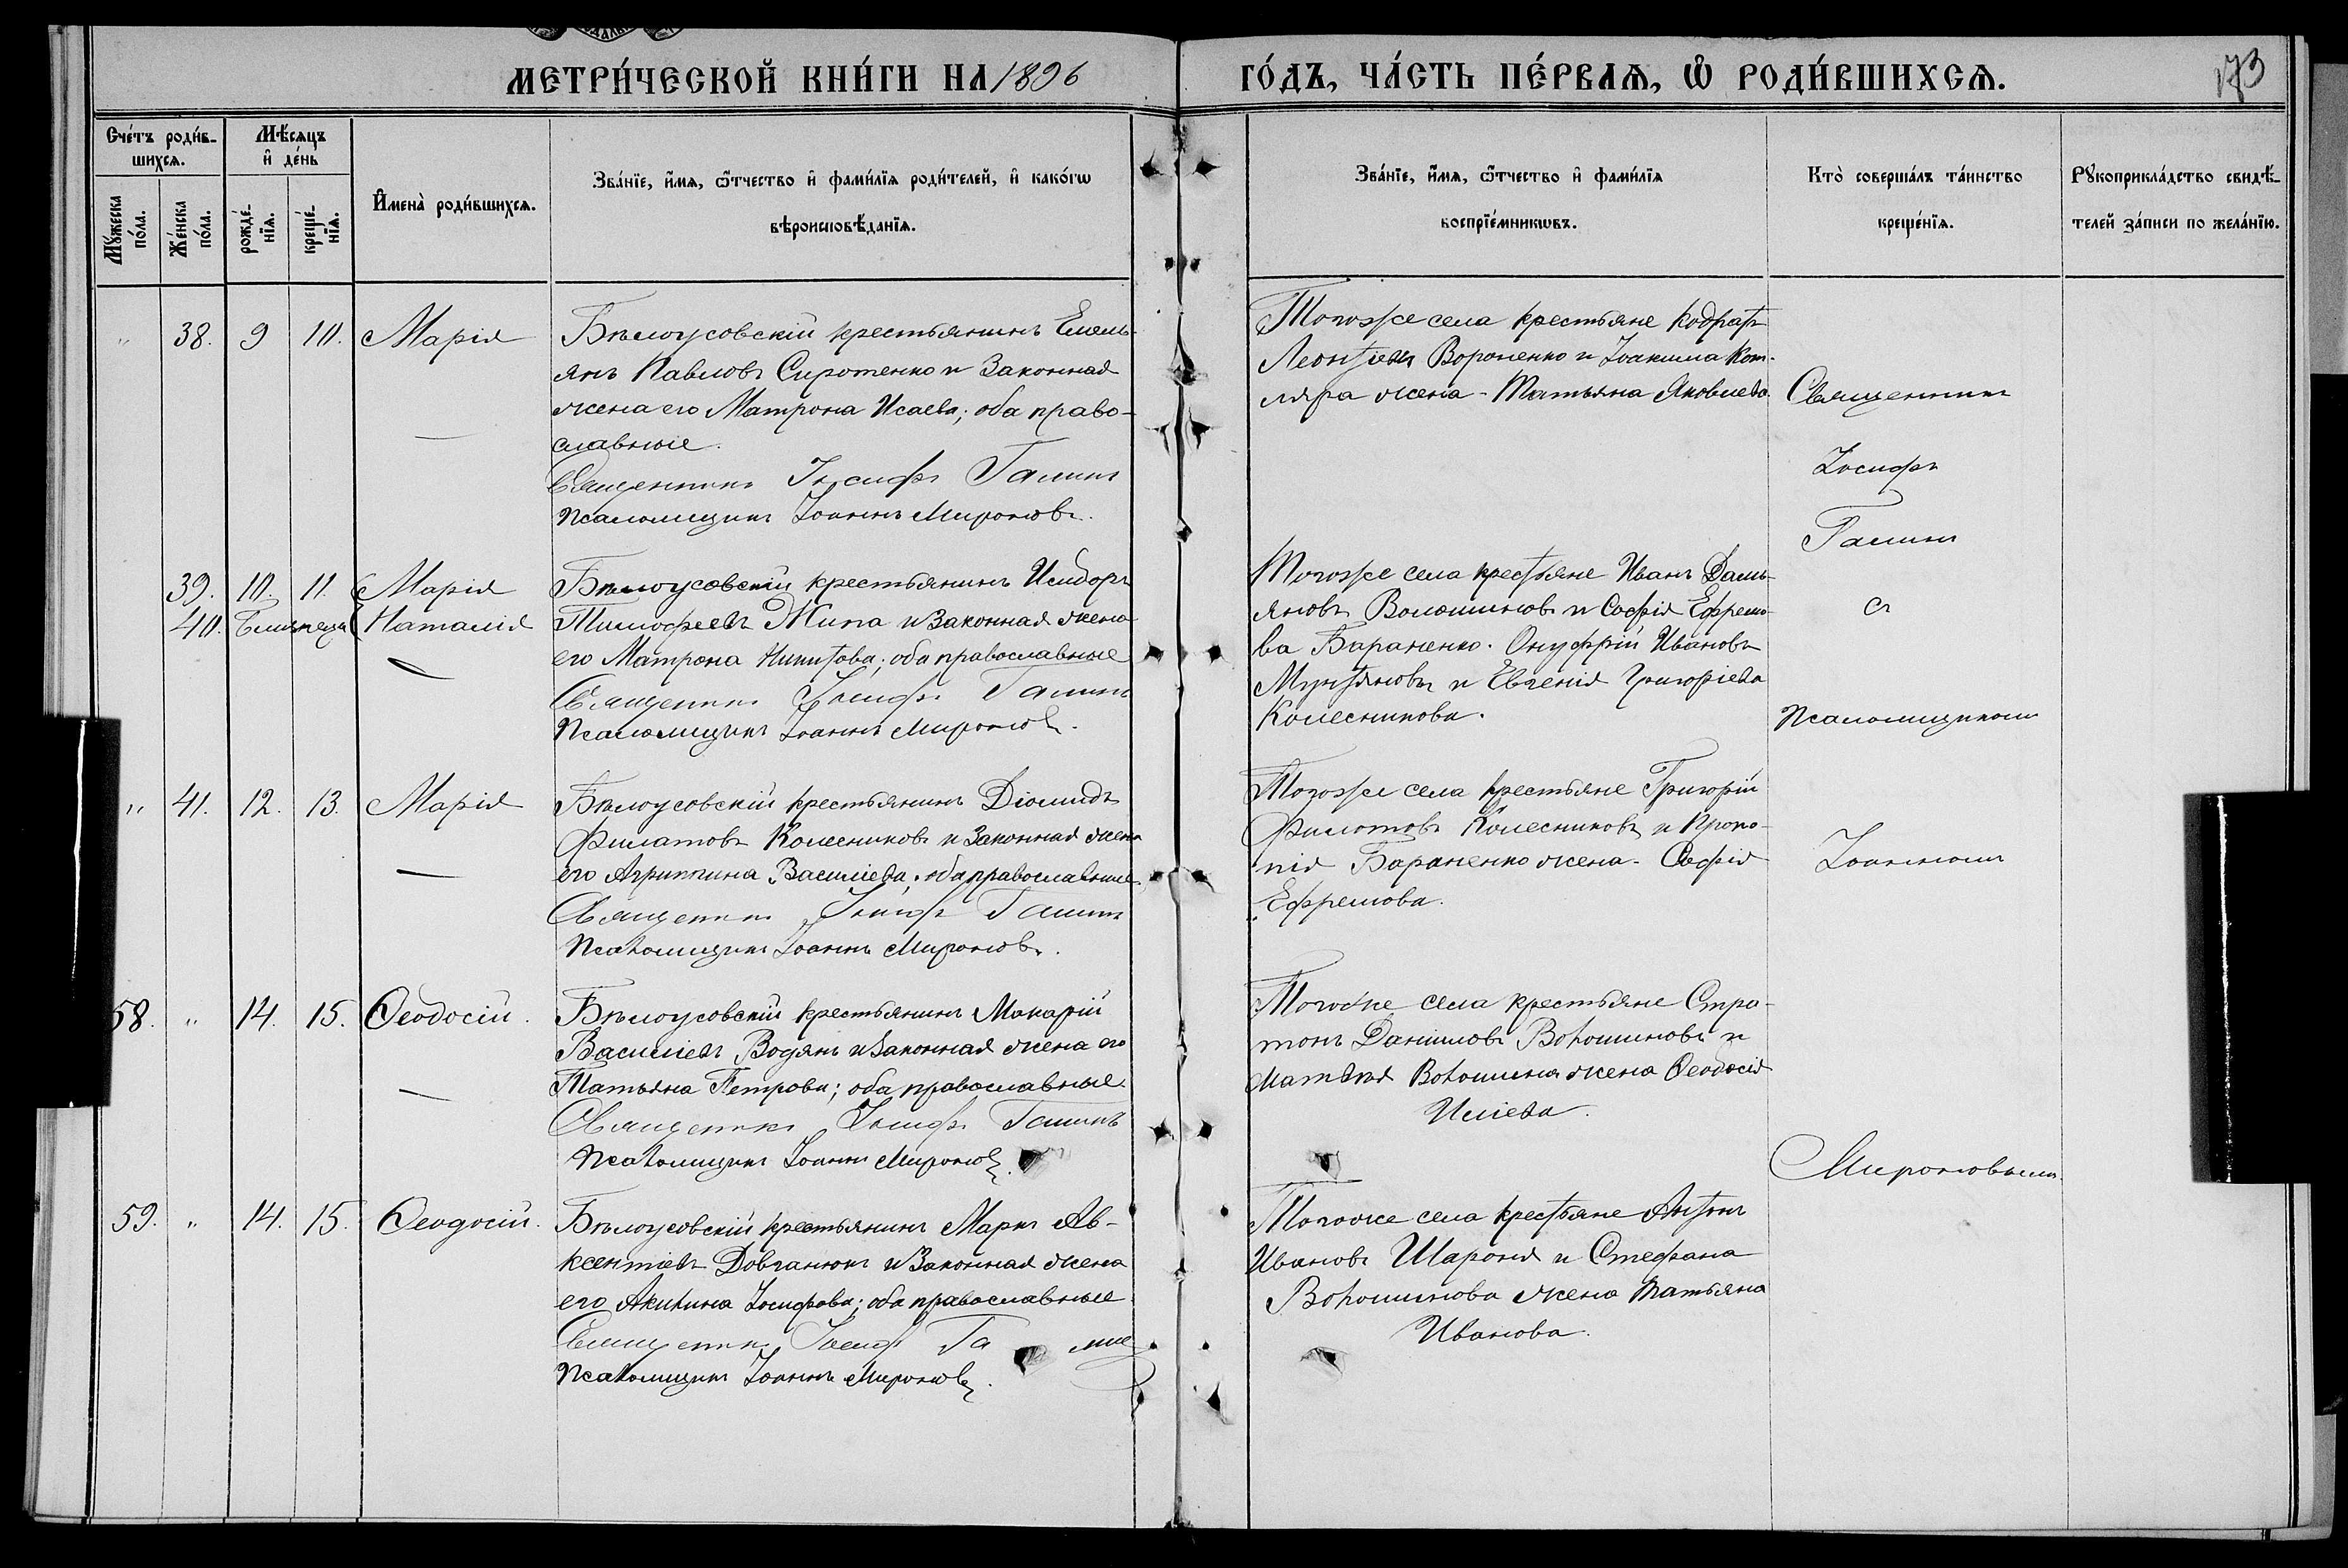 МЕТРИ́ЧЕСКОЙ КНИ́ГИ НА 1896 ГО́ДЪ, ЧА́СТЬ ПЕ́РВАѦ, Ѡ҆ РОДИ́ВШИХСѦ.
173
Сче́тъ роди́в-
шихсѧ.
Мѣ́сѧцъ
и҆ де́нь
Мꙋ́жеска
по́ла.
Же́нска
по́ла.
рожде́-
нїѧ.
креще́-
нїѧ.
И҆мена̀ роди́вшихсѧ.
Зва́нїе, и҆́мѧ, ѻ҆́тчество и҆ фами́лїѧ роди́телей, и҆ како́гѡ
вѣроисповѣ́данїѧ.
Зва́нїе, и҆́мѧ, ѻ҆́тчество и҆ фами́лїѧ
воспрїе́мникѡвъ.
Кто̀ соверша́лъ та́инство
креще́нїѧ.
Рꙋкоприкла́дство свидѣ́-
телей за́писи по жела́нїю.
" 38. 9 10. Марія
Бѣлоусовскій крестьянинъ Емель-
янъ Павловъ Сиротенко и законная
жена его Матрона Исаева; оба право-
славные.
Священникъ Іосифъ Галинъ
Псаломщикъ Іоаннъ Мироновъ.
Тогоже села крестьяне Кодратъ
Леонтіевъ Вороненко и Іоакима Кот-
ляра жена - Татьяна Яковлева.
Священникъ
Іосифъ
Галинъ
съ
Псаломщикомъ
Іоанномъ
Мироновымъ
39. 10. 11. Марія
40. Близнеца Наталія
Бѣлоусовскій крестьянинъ Исидоръ
Тимофеевъ Жила и законная жена
его Матрона Никитова; оба православные
Священникъ Іосифъ Галинъ
Псаломщикъ Іоаннъ Мироновъ.
Тогоже села крестьяне Иванъ Дамь-
яновъ Волошиновъ и Софія Ефремо-
ва Бараненко. Онуфрій Ивановъ
Мунтяновъ и Евгенія Григоріева
Колесникова.
" 41. 12. 13. Марія
Бѣлоусовскій крестьянинъ Діомидъ
Филатовъ Колесниковъ и законная жена
его Агриппина Василіева; оба православные.
Священникъ Іосифъ Галинъ
Псаломщикъ Іоаннъ Мироновъ.
Тогоже села крестьяне Григорій
Филатовъ Колесниковъ и Проко-
пія Бараненко жена - Софія
Ефремова.
58. " 14. 15. Ѳеодосій.
Бѣлоусовскій крестьянинъ Макарій
Василіевъ Водянъ и законная жена его
Татьяна Петрова; оба православные.
Священникъ Іосифъ Галинъ
Псаломщикъ Іоаннъ Мироновъ.
Тогоже села крестьяне Стра-
тонъ Даніиловъ Волошиновъ и
Матѳея Волошина жена Ѳеодосія
Иліева.
59. " 14. 15. Ѳеодосій.
Бѣлоусовскій крестьянинъ Маркъ Ав-
ксентіевъ Довганюкъ и законная жена
его Акилина Іосифова; оба православные
Священникъ Іосифъ Галинъ
Псаломщикъ Іоаннъ Мироновъ.
Тогоже села крестьяне Антонъ
Ивановъ Шароня и Стефана
Волошинова жена Татьяна
Иванова.